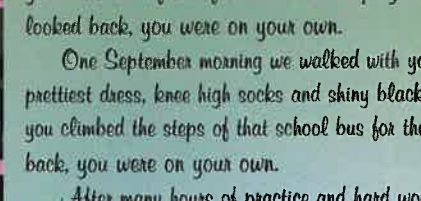 looked back, you were on your own.
One September morning we walked with
prettiest dress, knee high socks and shiny black
you climbed the steps of that school bus for the
back, you were on your own.
After many hours of practice and hard